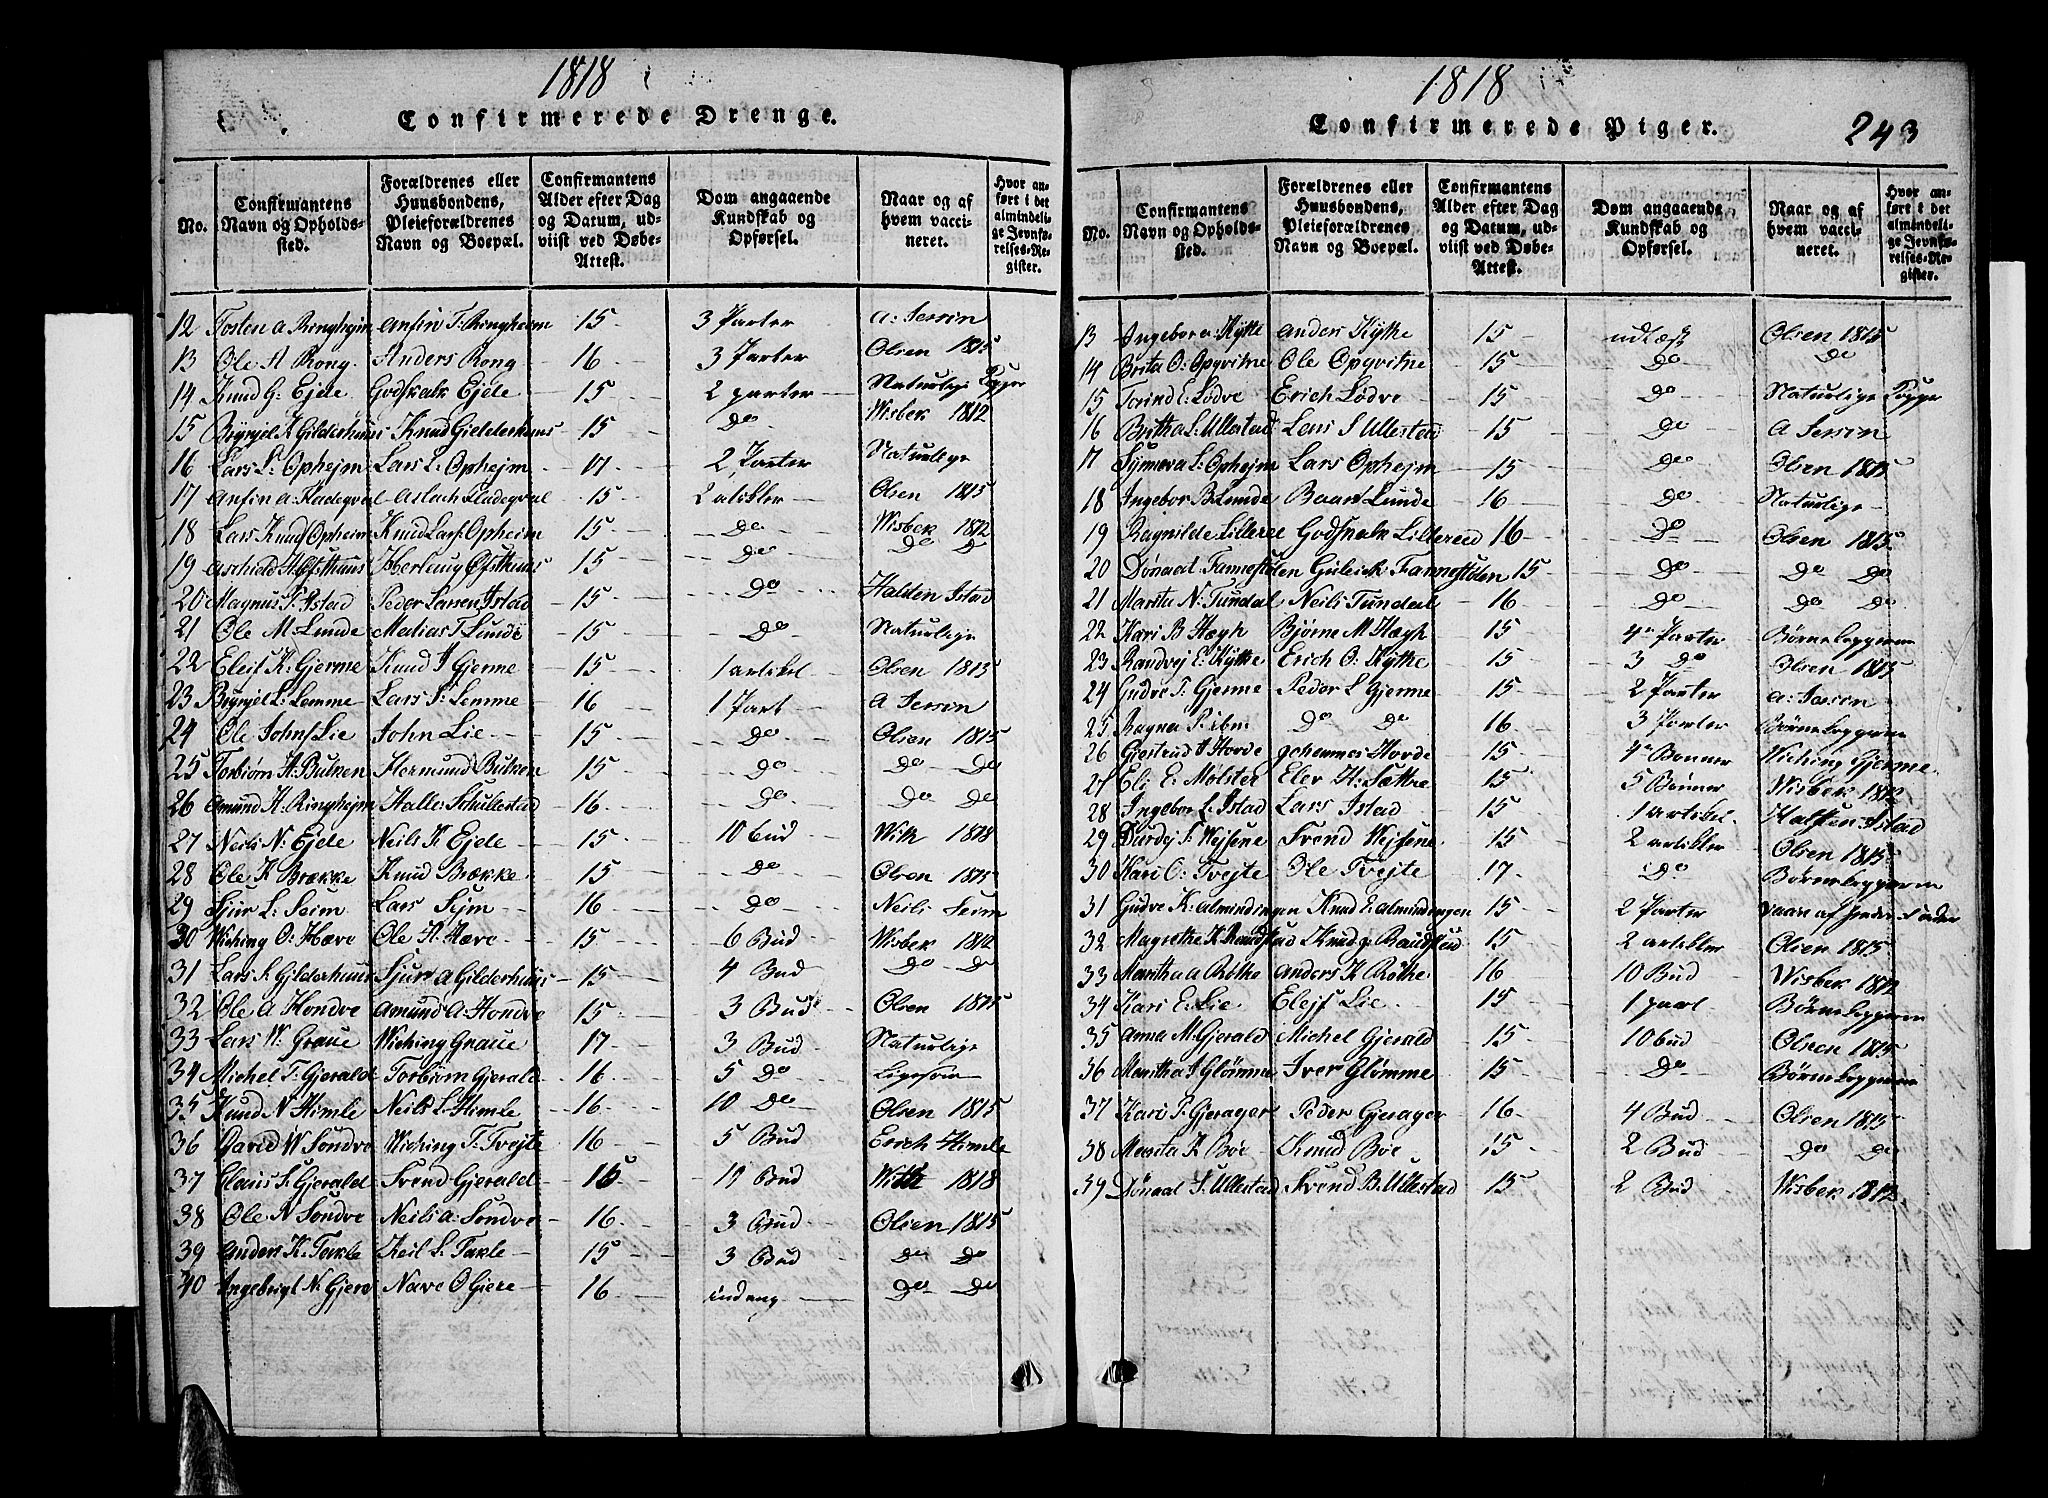 1818
Confirmerede Drenge.
No.
Confirmantens Navn og Opholdssted.
Forældrenes eller Huusbondens, Pleieforældrenes Navn og Boepæl.
Confirmantens Alder efter Dag og Datum, udviist ved Døbe-Attest.
Dom angaaende Kundskab og Opførsel.
Naar og af hvem vaccineret.
Hvor anført i det almindelige Jevnførelses-Register.
12 Tosten A Ringhejm Anfin T: Ringheim 15 3 Parter A: Sersin
13 Ole A Rong Anders Rong 16 3 Parter Olsen 1815
14 Knud G: Ejde Godskalk Ejde 15 2 parter Naturlige Kopper
15 Bryngel K Gilderhuus Knud Gielderhuus 15 Do Wisbek 1812
16 Lars L: Ophejm Lars L: Ophejm 17 2 Parter Naturlige
17 Anfin A: Kladegval Aslach Kladegval 15 2 atikler Olsen 1815
18 Lars Knuds Opheim Knud Lars: Opheim 15 Do Wisbek 1812
19 Aschield H Øfsthuus Herloug Øfsthuus 15 Do Do Do
20 Magnus P: Istad Peder Larsen Istad 15 Do Halsten Istad
21 Ole M: Lunde Matias T Lunde 15 Do Naturlige
22 Eleif K: Gjerme Knud I Gjerme 15 1 artikel Olsen 1815
23 Bryngel L: Lemme Lars S: Lemme 16 1 Part A Sersin
24 Ole Johns Lie John Lie 15 Do Olsen 1815
25 Torbiørn H: Bulken Hermund Bulken 15 Do Do Do
26 Amund H. Ringhejm Halle: Schulestad 16 Do Do Do
27 Neils N: Ejde Neils K: Ejde 15 10 bud With 1818
28 Ole K Brække Knud Brække 15 Do Olsen 1815
29 Sjur L: Seim Lars Sejm 16 Do Neils Seim
30 Wiching O: Hæve Ole H: Hæve 15 6 Bud Wisbek 1812
31 Lars S. Gilderhuus Sjur A Gilderhuus 15 4 Bud Do Do
32 Ole A Hondve Amund A: Hondve 15 3 Bud Olsen 1815
33 Lars W: Graue Wiching Graue 17 3 Bud Naturlige
34 Michel T: Gjerald Torbiørn Gjerald 16 5 Do Ligesom
35 Knud N Himle Neils L: Himle 16 10 Do Olsen 1815
36 David W Sondve Wiching T: Tvejte 16 5 Bud Erich Himle
37 Claus S: Gjerald Svend Gjerald 16 19 Bud With 1818
38 Ole N Sondve Neils A: Sondve 16 3 Bud Olsen 1815
39 Anders K: Takle Keil L. Takle 15 3 Bud Do Do
40 Ingebrigt N: Gjere Nave O Giere 16 indeng Do Do
1818
Confirmerede Piger. 243
No.
Confirmantens Navn og Opholdssted.
Forældrenes eller Huusbondens, Pleieforældrenes Navn og Boepæl.
Confirmantens Alder efter Dag og Datum, udviist ved Døbe-Attest.
Dom angaaende Kundskab og Opførsel.
Naar og af hvem vaccineret.
Hvor anført i det almindelige Jevnførelses-Register.
13 Ingebor A: Kytte Anders Kytke 15 udLæst Olsen 1815
14 Brita O: Opqvitne Ole Opqvitne 15 Do Do
15 Torind E: Lødve Erich Lødve 15 Do Naturlige Kopper
16 Britha L: Ullestad Lars S Ullestad 15 Do A Sersin
17 Synneva L: Ophejm Lars Ophejm 15 Do Olsen 1815
18 Ingebor B Lunde Baar Lunde 16 Do Naturlige
19 Ragnilde Lillereed Godskalk Lillereed 16 Do Olsen 1815
20 Dønaat Fannestølen Guleick Fannestølen 15 Do Do Do
21 Marita N: Tundal Neils Tundal 16 Do Do Do
22 Kari B Hægh Bjørne M Hægh 15 4re Parter Børnekopperne
23 Randvej E: Kytke Erich O: Kytke 15 3 Do Olsen 1815
24 Gudve P: Gjerme Peder L Gjerme 15 2 Parter A: Sersin
25 Ragna P: ibm Do Do 16 3 Parter Børnekopperne
26 Giertrud I Hovde Johannes Hovde 15 4re Bønner Wiching Gjerme
27 Eli E: Mølster Elev H: Sætre 15 5 Bønner Wisbek 1812
28 Ingebor L: Istad Lars Istad 15 1 artikel Halsten Istad
29 Durdej S: Wejsene Svend Wejsene 15 2 artikler Olsen 1815
30 Kari O: Tvejte Ole Tvejte 17 Do Børnekopperne
31 Gudve K: Almindingen Knud E: Almindingen 15 2 Parter
32 Magrethe K Raudstad Knud G. Raudstad 15 2 artikler Olsen 1815
33 Martha A Røthe Anders K Røthe 16 10 Bud Wisbek 1812
34 Kari E: Lie Elejf Lie 15 1 part Børnekopperne
35 Anna M. Gjerald Michel Gjerald 15 10 bud Olsen 1815
36 Martha I Glømme Iver Glømme 15 Do Børnekopperne
37 Kari P: Gjerager Peder Gjerager 16 4 Bud Olsen 1815
38 Marita K Bøe Knud Bøe 15 2 Bud Do Do
39 Dønaat S. Ullestad Svend B. Ullestad 15 2 Bud Wisbek 1812